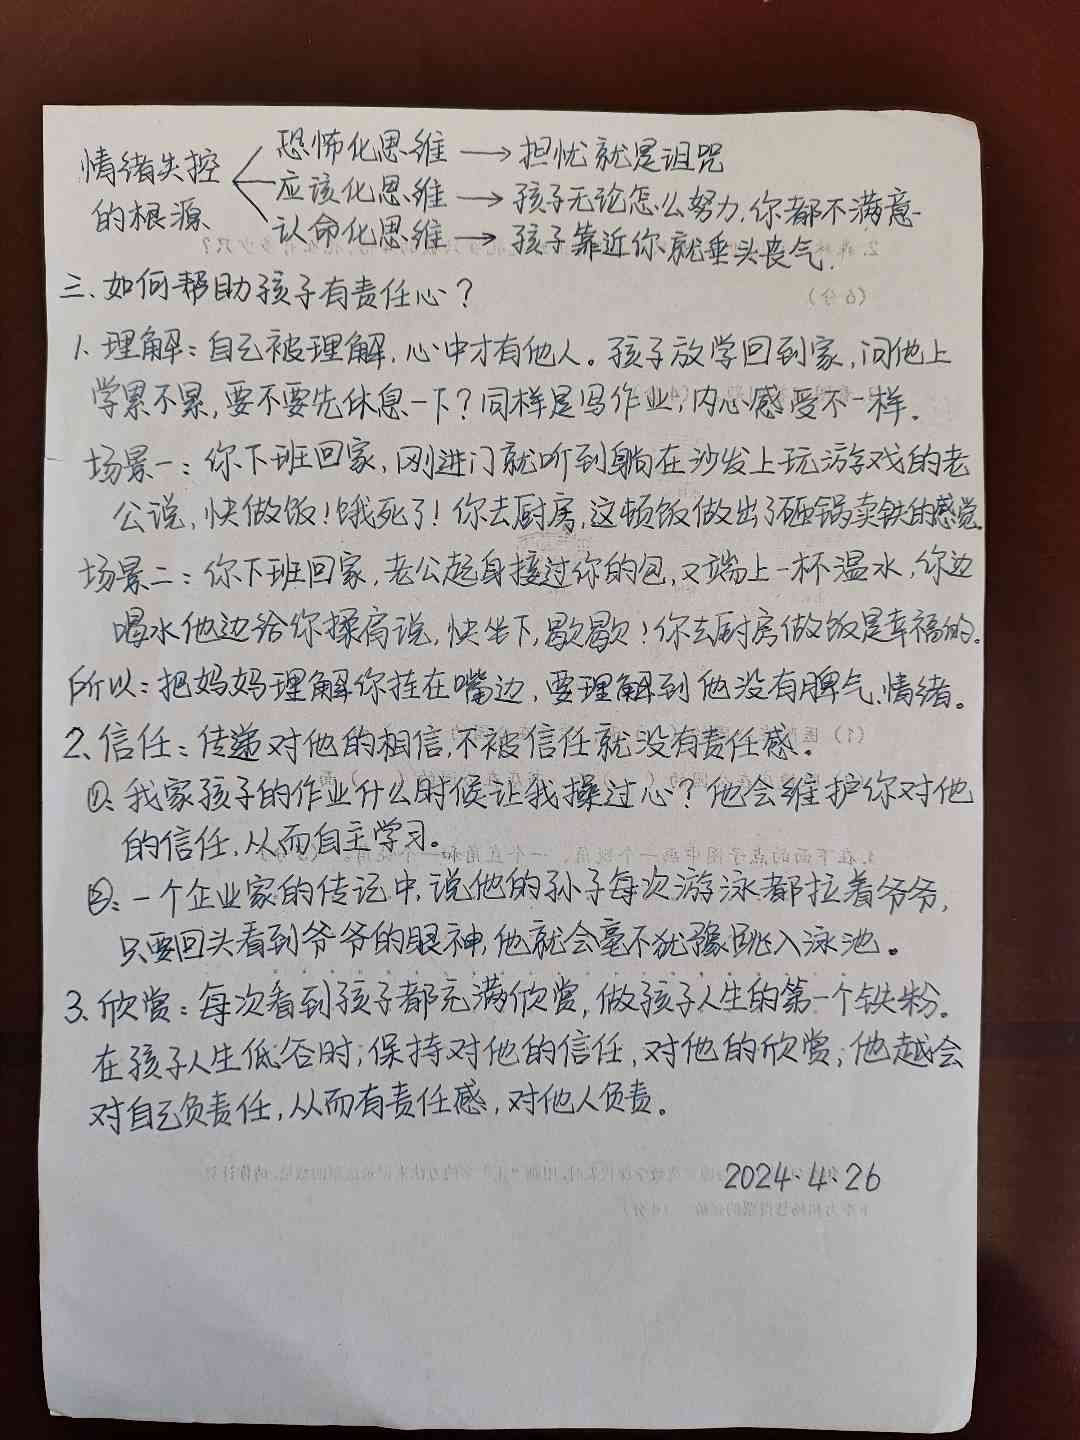 情绪失控
的根源
恐怖化思维 → 担忧就是诅咒
应该化思维 → 孩子无论怎么努力,你都不满意
认命化思维 → 孩子靠近你就垂头丧气.
三、如何帮助孩子有责任心?
1、理解:自己被理解,心中才有他人。孩子放学回到家,问他上
学累不累,要不要先休息一下?同样是写作业,内心感受不一样.
场景一:你下班回家,刚进门就听到躺在沙发上玩游戏的老
公说,快做饭!饿死了!你去厨房,这顿饭做出了砸锅卖铁的感觉.
场景二:你下班回家,老公起身接过你的包,又端上一杯温水,你边
喝水他边给你揉肩说,快坐下,歇歇!你去厨房做饭是幸福的.
所以:把妈妈理解你挂在嘴边,要理解到他没有脾气、情绪。
2、信任:传递对他的相信,不被信任就没有责任感.
①、我家孩子的作业什么时候让我操过心?他会维护你对他
的信任,从而自主学习。
②、一个企业家的传记中,说他的孙子每次游泳都拉着爷爷,
只要回头看到爷爷的眼神,他就会毫不犹豫跳入泳池。
3、欣赏:每次看到孩子都充满欣赏,做孩子人生的第一个铁粉.
在孩子人生低谷时,保持对他的信任,对他的欣赏,他越会
对自己负责任,从而有责任感,对他人负责。
2024.4.26